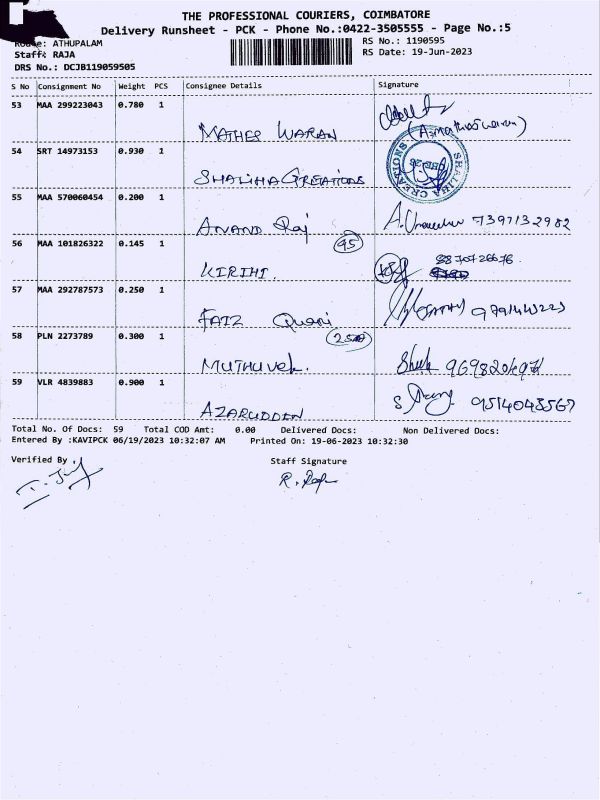 THE PROFESSIONAL COURIERS, COIMBATORE
Delivery Runsheet - PCK - Phone No.:0422-3505555 - Page No.:5
Route: ATHUPALAM
RS No.: 1190595
Staff: RAJA
RS Date: 19-Jun-2023
DRS No.: DCJB119059505
S No Consignment No Weight PCS Consignee Details Signature
53 MAA 299223043 0.780 1
MATHES WARAN
54 SRT 14973153 0.930 1
SHALIHA CREATIONS
SHALIHA CREATIONS
55 MAA 570060454 0.200 1
ANAND Raj 7397132982
56 MAA 101826322 0.145 1
95
KIRIHI.
57 MAA 292787573 0.250 1
FAIZ Quari
58 PLN 2273789 0.300 1
MUTHUVEL.
59 VLR 4839883 0.900 1
AZARUDDEN 9514043567
Total No. Of Docs: 59 Total COD Amt: 0.00 Delivered Docs: Non Delivered Docs:
Entered By :KAVIPCK 06/19/2023 10:32:07 AM Printed On: 19-06-2023 10:32:30
Verified By Staff Signature